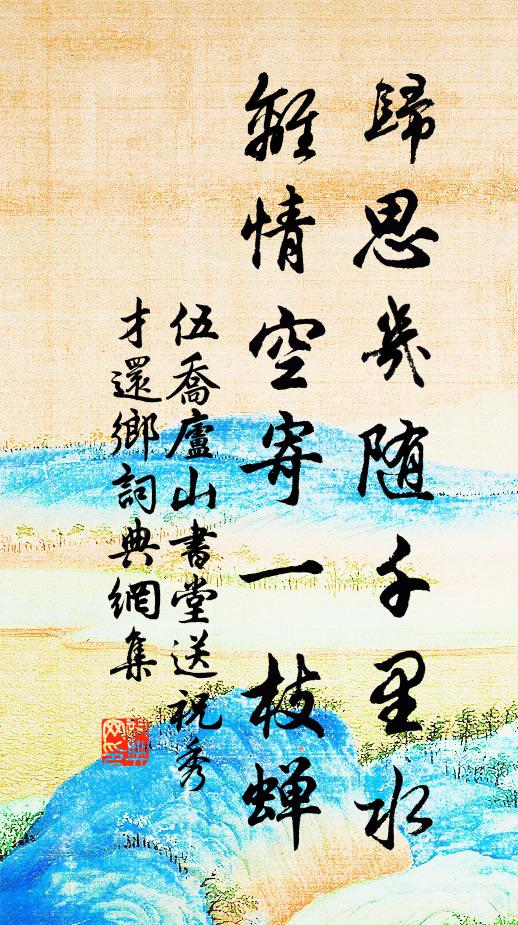 歸思幾随千里水
離情空寄一枝蝉
伍喬廬山書堂送祝秀
才還鄉詞典網集